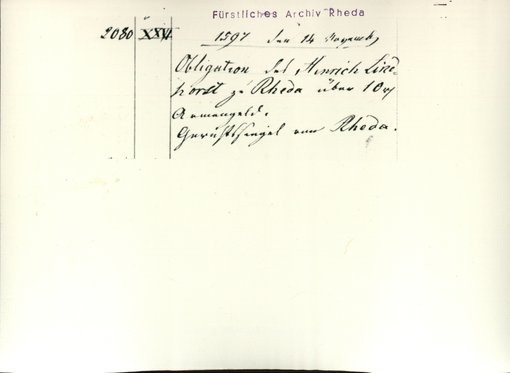 Fürstliches Archiv Rheda
2080 XXVI. 1597 den 14 Novemb
Obligation des Henrich
horst zu Rheda über 10
Armengeld.
Gerichtssiegel von Rheda.